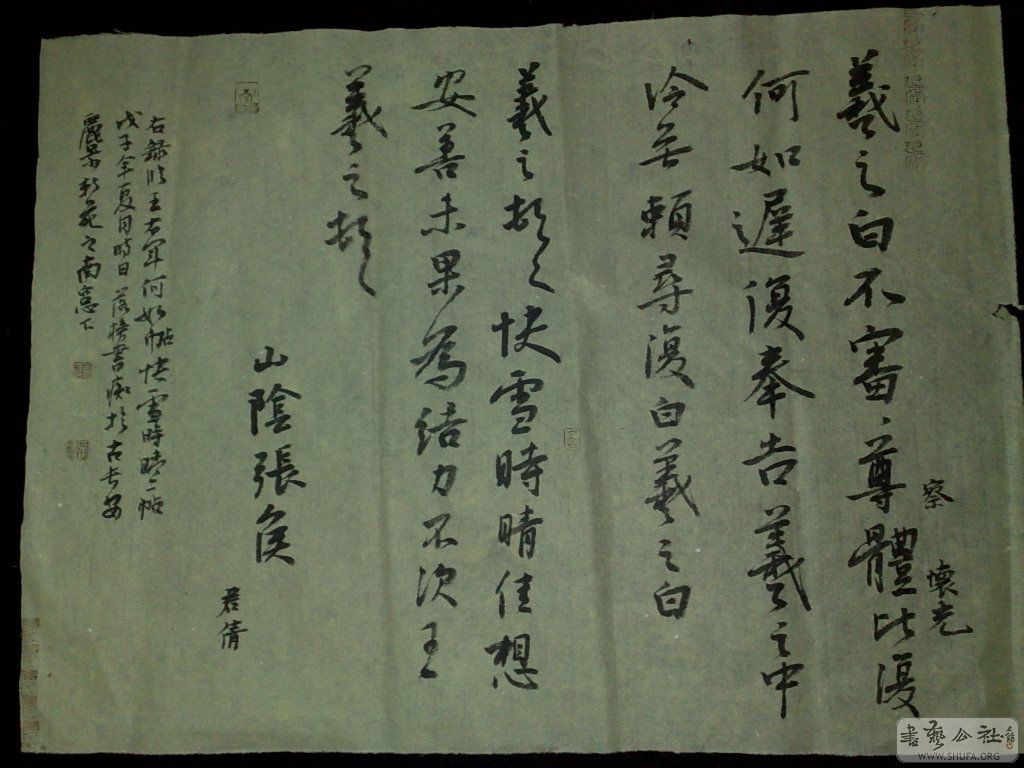 察
懷充
羲之白不審、尊體比復
何如遲復奉告羲之中
冷無賴尋復白羲之白
羲之頓首快雪時晴佳想
安善未果為結力不次王
羲之頓首
山陰張侯
君倩
右錄臨王右軍何如帖快雪時晴二帖
戊子年夏月時日落榜書痴於古長安
之南窗下
書藝公社
WWW.SHUFA.ORG